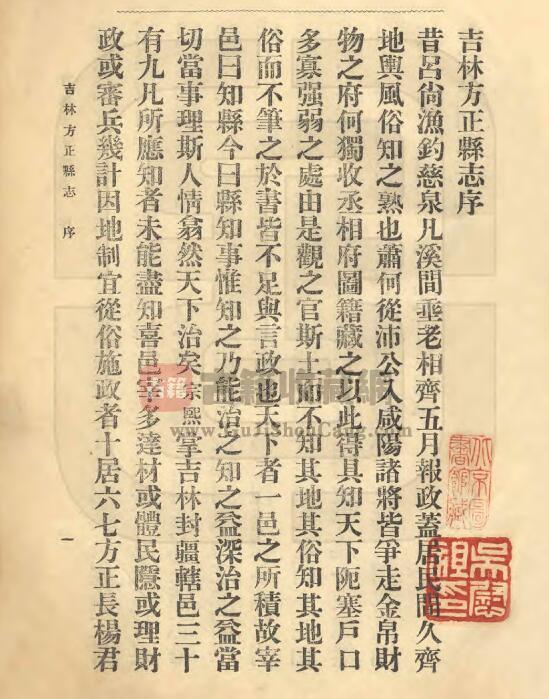 吉林方正縣志序
昔呂尙漁釣慈泉凡溪間垂老相齊五月報政蓋居民間久齊
地輿風俗知之熟也蕭何從沛公入咸陽諸將皆爭走金帛財
物之府何獨收丞相府圖籍藏之以此得具知天下阨塞戶口
多寡强弱之處由是觀之官斯土而不知其地其俗知其地其
俗而不筆之於書皆不足與言政也天下者一邑之所積故宰
邑曰知縣今曰縣知事惟知之乃能治之知之益深治之益當
切當事理斯人情翕然天下治矣宗熙掌吉林封疆轄邑三十
有九凡所應知者未能盡知喜邑宰多達材或體民隱或理財
政或審兵幾計因地制宜從俗施政者十居六七方正長楊君
吉林方正縣志 序
一
古籍
古籍收藏網
www.GujiShouCang.com